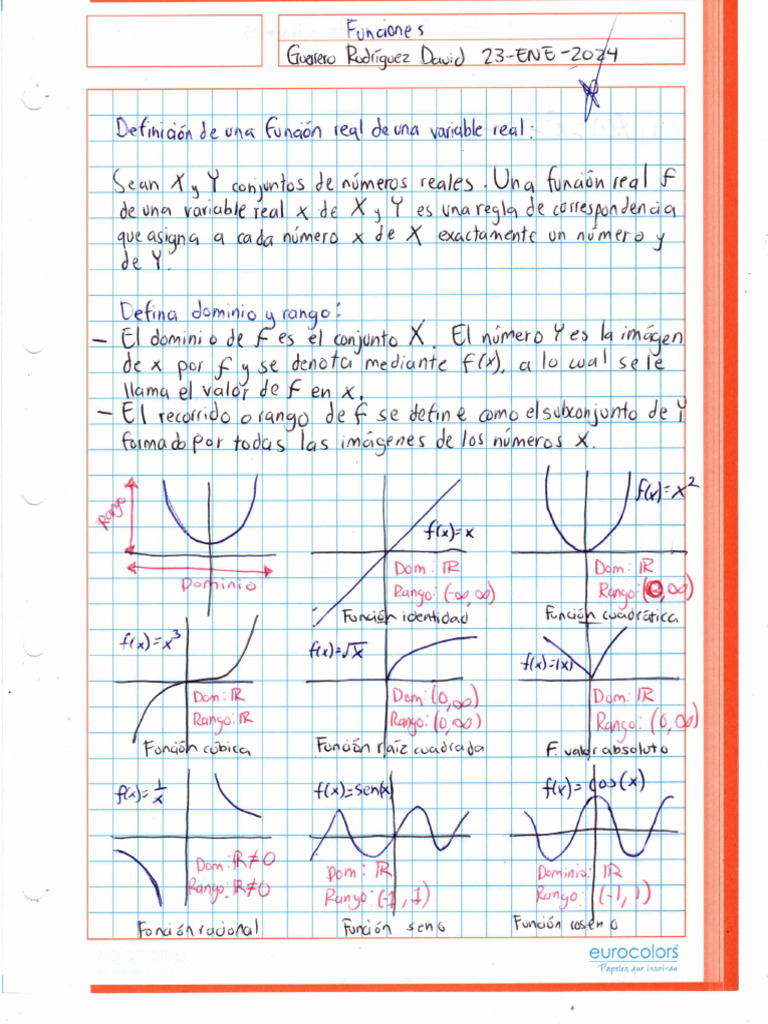 Funciones
Guerrero Rodríguez David 23-ENE-2024
Definición de una función real de una variable real:
Sean X y Y conjuntos de números reales. Una función real f
de una variable real x de X y Y es una regla de correspondencia
que asigna a cada número x de X exactamente un número y
de Y.
Defina dominio y rango:
- El dominio de f es el conjunto X. El número Y es la imágen
de x por f y se denota mediante f(x), a lo cual se le
llama el valor de f en x.
- El recorrido o rango de f se define como el subconjunto de Y
formado por todas las imágenes de los números x.
Rango
Dominio
f(x)=x
Dom: ℝ
Rango: (-∞,∞)
Función identidad
f(x)=x²
Dom: ℝ
Rango: (0,∞)
Función cuadrática
f(x)=x³
Dom: ℝ
Rango: ℝ
Función cúbica
f(x)=√x
Dom: (0,∞)
Rango: (0,∞)
Función raíz cuadrada
f(x)=|x|
Dom: ℝ
Rango: (0,∞)
F. valor absoluto
f(x)=1/x
Dom: ℝ≠0
Rango: ℝ≠0
Función racional
f(x)=sen(x)
Dom: ℝ
Rango: (-1,1)
Función seno
f(x)=cos(x)
Dominio: ℝ
Rango: (-1,1)
Función coseno
eurocolors
Papeles que inspiran